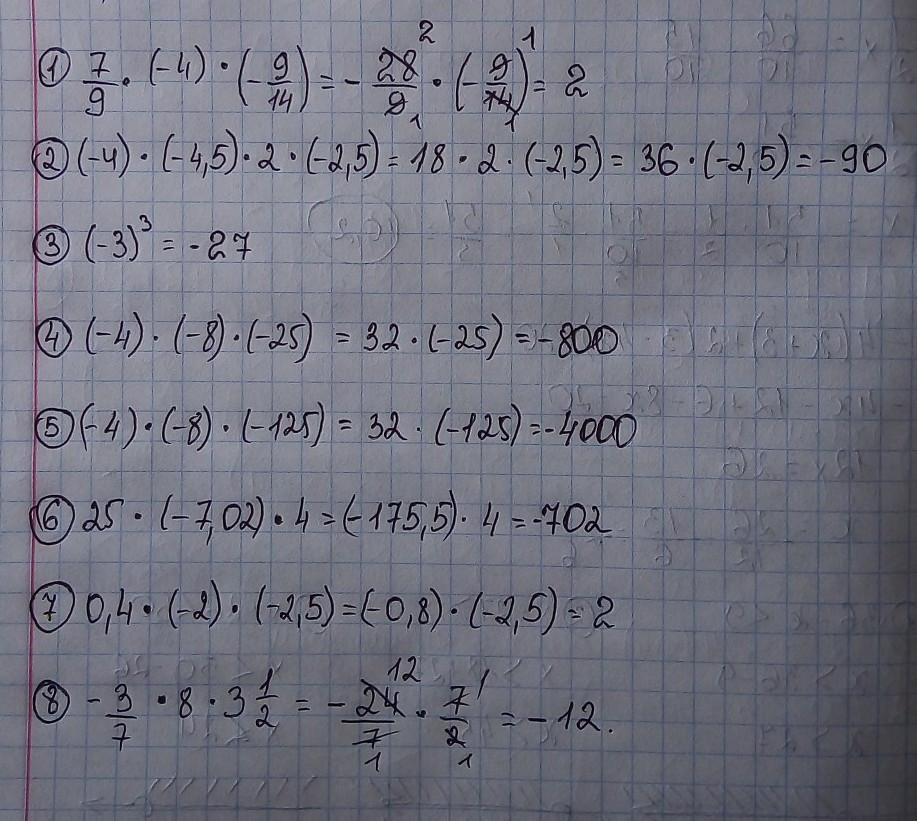 ① 7/9 · (-4) · (-9/14) = - 28/9 · (-9/14) = 2
② (-4) · (-4,5) · 2 · (-2,5) = 18 · 2 · (-2,5) = 36 · (-2,5) = -90
③ (-3)³ = -27
④ (-4) · (-8) · (-25) = 32 · (-25) = -800
⑤ (-4) · (-8) · (-125) = 32 · (-125) = -4000
⑥ 25 · (-7,02) · 4 = (-175,5) · 4 = -702
⑦ 0,4 · (-2) · (-2,5) = (-0,8) · (-2,5) = 2
⑧ - 3/7 · 8 · 3 1/2 = - 24/7 · 7/2 = -12.